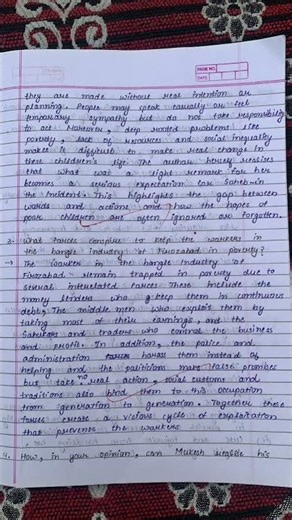 PAGE NO.
DATE
they are made without real intention or
planning. People may speak casually or feel
temporary sympathy but do not take responsibility
to act. Moreover, deep rooted problems like
poverty, lack of resources and social inequality
make it difficult to make real change in
these children's life. The author herself realises
that what was a light remark for her
becomes a serious expectation for Saheb in
the incident. This highlights the gap between
words and actions and how the hopes of
poor children are often ignored or forgotten.
3- What forces conspire to keep the workers in
the bangle industry of Firozabad in poverty?
→ The workers in the bangle industry of
Firozabad remain trapped in poverty due to
several interrelated forces. These include the
money lenders who keep them in continuous
debt, The middle men who exploit them by
taking most of their earnings, and the
Sahukars and traders who control the business
and profit. In addition, the police and
administration harass them instead of
helping and the politicians make false promises
but take real action, social customs and
traditions also bind them to this occupation
from generation to generation. Together these
forces create a vicious cycle of exploitation
that prevents the workers
4. How, in your opinion, can Mukesh realise his